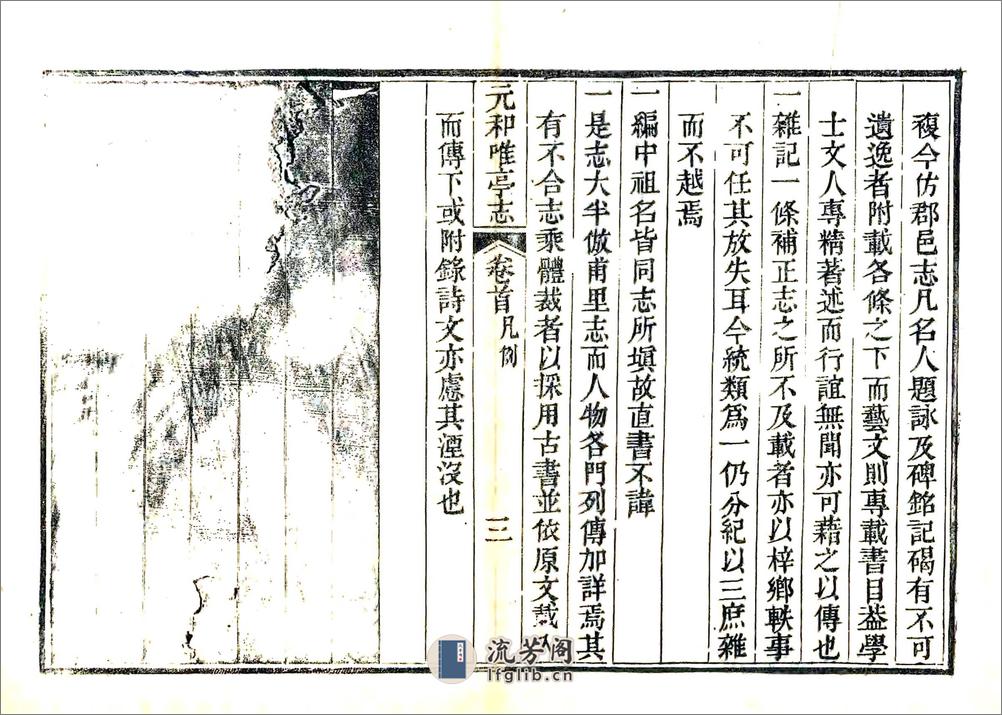 複今仿郡邑志凡名人題詠及碑銘記碣有不可
遺逸者附載各條之下而藝文則專載書目葢學
士文人專精著述而行誼無聞亦可藉之以傳也
一雜記一條補正志之所不及載者亦以梓鄉軼事
不可任其放失耳今統類爲一仍分紀以三庶雜
而不越焉
一編中祖名皆同志所塡故直書不諱
一是志大半倣甫里志而人物各門列傳加詳焉其
有不合志乘體裁者以採用古書並依原文載入
元和唯亭志 卷首 凡例 三
而傳下或附錄詩文亦慮其湮沒也
流芳阁
lfglib.cn